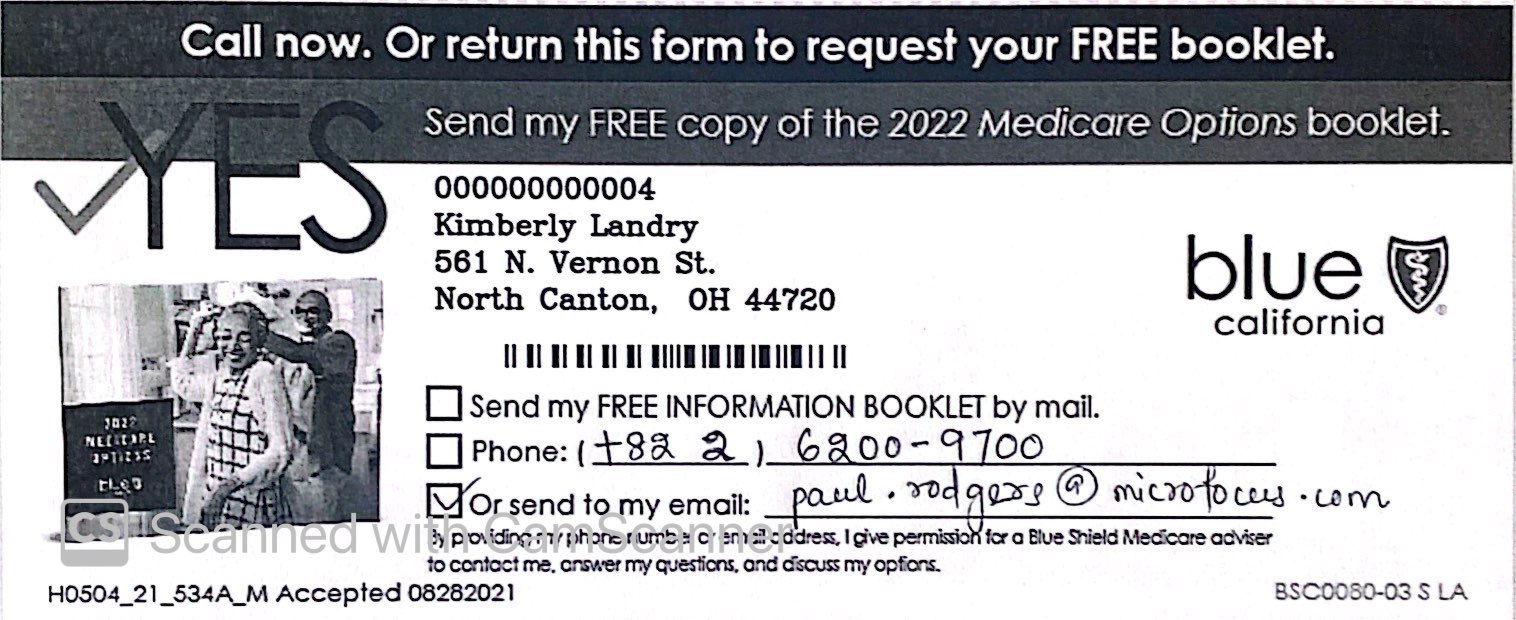 Call now. Or return this form to request your FREE booklet.
YES
Send my FREE copy of the 2022 Medicare Options booklet.
000000000004
Kimberly Landry
561 N. Vernon St.
North Canton, OH 44720
blue
california
Send my FREE INFORMATION BOOKLET by mail.
Phone: (+82 2) 6200-9700
Or send to my email: paul.rodgers@microfocus.com
By providing my phone number or email address, I give permission for a Blue Shield Medicare adviser
to contact me, answer my questions, and discuss my options.
2022
CS Scanned with CamScanner
H0504_21_534A_M Accepted 08282021
BSC0080-03 S LA